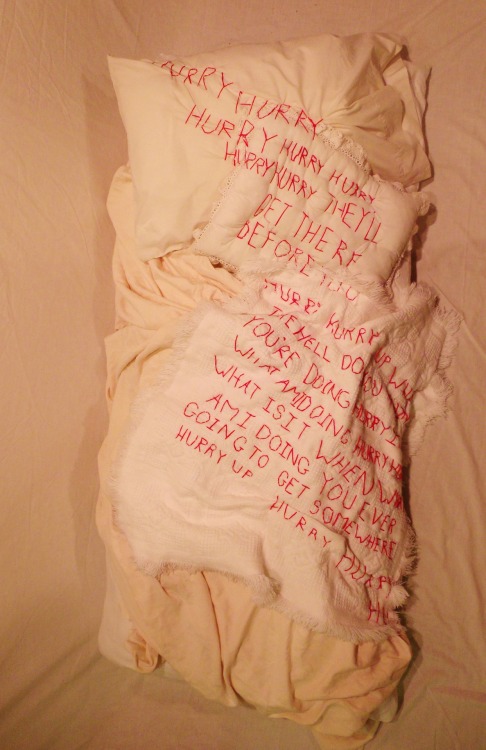 HURRY HURRY
HURRY HURRY HURRY
HURRY HURRY THEY'LL
GET THERE
BEFORE YOU
HURRY HURRY UP WILL
THE HELL DO YOU
YOU'RE DOING HURRY I
WHAT AM I DOING HURRY
WHAT IS IT WHEN
AM I DOING YOU EVER
GOING TO GET SOMEWHERE
HURRY UP HURRY HURRY